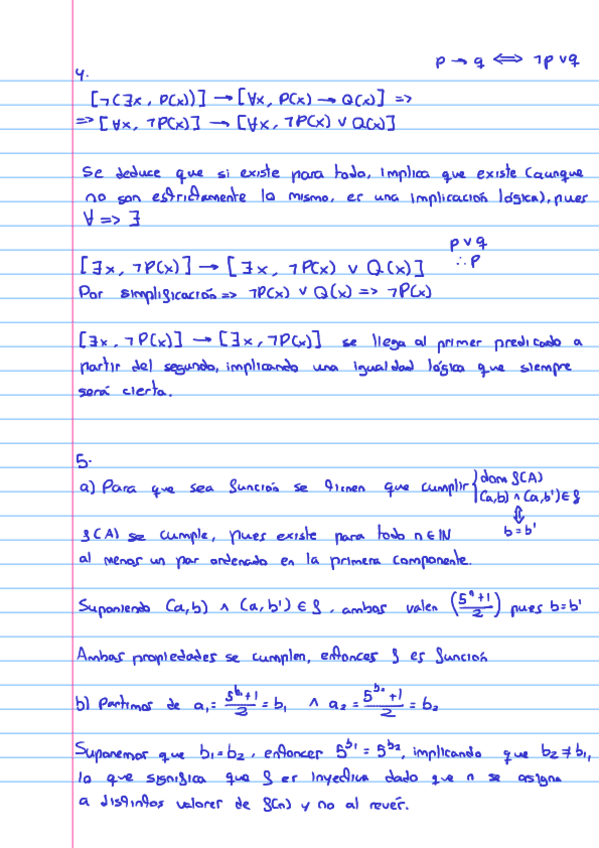 p → q ⟺ ¬p ∨ q
4.
[¬(∃x, P(x))] → [∀x, P(x) → Q(x)] =>
=> [∀x, ¬P(x)] → [∀x, ¬P(x) ∨ Q(x)]
Se deduce que si existe para todo, implica que existe (aunque
no son estrictamente lo mismo, es una implicación lógica), pues
∀ => ∃
p ∨ q
∴ p
[∃x, ¬P(x)] → [∃x, ¬P(x) ∨ Q(x)]
Por simplificación => ¬P(x) ∨ Q(x) => ¬P(x)
[∃x, ¬P(x)] → [∃x, ¬P(x)] se llega al primer predicado a
partir del segundo, implicando una igualdad lógica que siempre
será cierta.
5.
a) Para que sea función se tienen que cumplir { dom f(A)
(a,b) ∧ (a,b') ∈ f
⇕
b = b'
f(A) se cumple, pues existe para todo n ∈ ℕ
al menos un par ordenado en la primera componente.
Suponiendo (a,b) ∧ (a,b') ∈ f, ambos valen (5ⁿ+1/2) pues b = b'
Ambas propiedades se cumplen, entonces f es función
b) Partimos de a₁ = 5^b₁+1/2 = b₁ ∧ a₂ = 5^b₂+1/2 = b₂
Suponemos que b₁ = b₂, entonces 5^b₁ = 5^b₂, implicando que b₂ ≠ b₁,
lo que significa que f es inyectiva dado que n se asigna
a distintos valores de f(n) y no al revés.